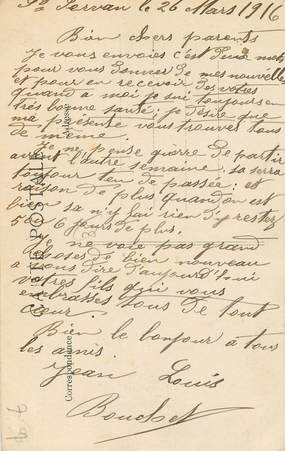 St Servan le 26 Mars 1916
Bien chers parents
Je vous envoies c'est deux mots
pour vous donner de mes nouvelle
et pour en recevoir des votres
quand a moi je sui toujours en
très bonne santé, je désire que
ma présente vous trouver tous
de même.
Je ne pense guerre de partir
avant l'autre semaine, sa sera
toujour ten de passée; et
raison de plus quand on est
bien sa n'y fai rien d'y restez
5 ou 6 jours de plus.
Je ne voie pas grand
choses de bien nouveau
a vous dire d'aujourd'hui
votres fils qui vous
embrasses tous de tout
cœur.
Bien le bonjour a tous
les amis.
Jean Louis
Bouchet
CARTE POSTALE
Correspondance